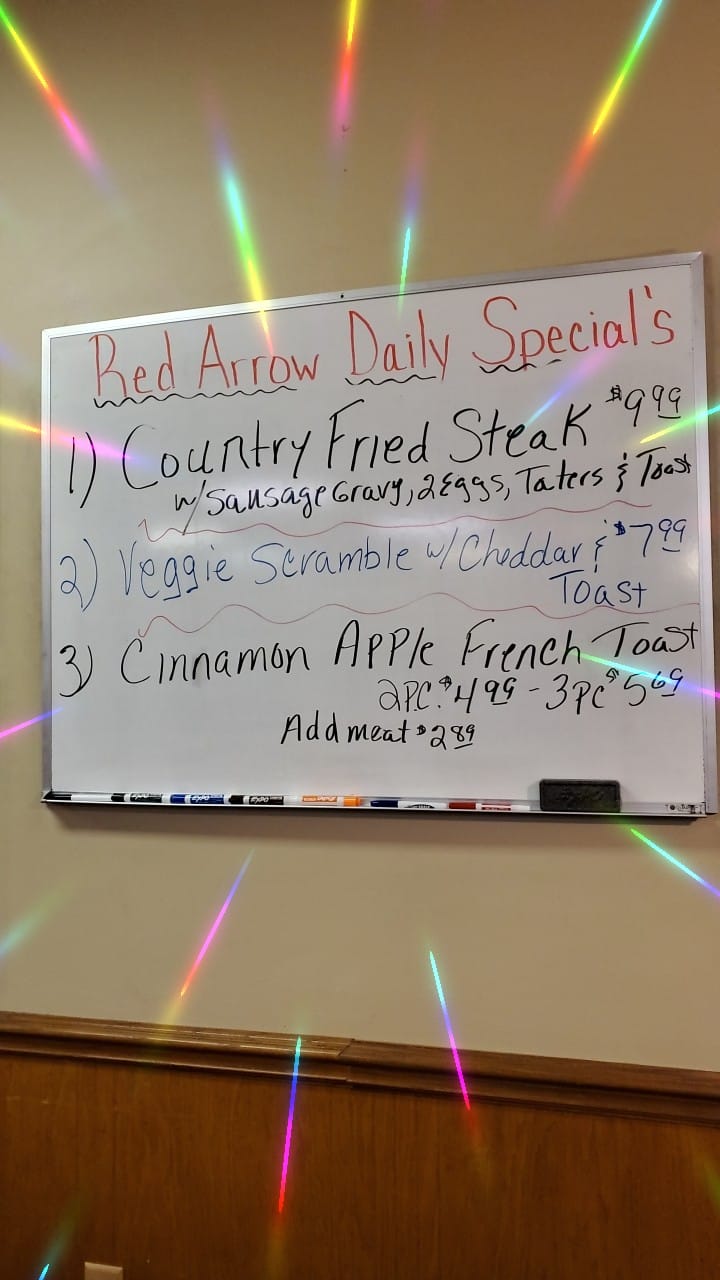 Red Arrow Daily Special's
1) Country Fried Steak $9.99
w/ Sausage Gravy, 2 Eggs, Taters & Toast
2) Veggie Scramble w/ Cheddar & $7.99
Toast
3) Cinnamon Apple French Toast
2PC. $4.99 - 3PC $5.69
Add meat $2.89
EXPO EXPO